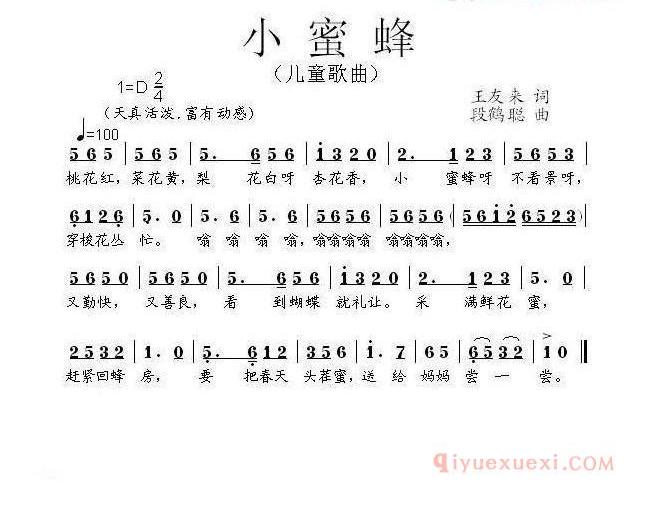 小蜜蜂
（儿童歌曲）
1=D 2/4
王友来 词
（天真活泼.富有动感）
段鹤聪 曲
♩=100
5 6 5 | 5 6 5 | 5. 6 5 6 | i 3 2 0 | 2. 1 2 3 | 5 6 5 3 |
桃花红，菜花黄，梨 花白呀 杏花香，小 蜜蜂呀 不看景呀，
6 1 2 6 | 5. 0 | 5. 5. | 5. 5. | 5656 5656 | 5656 5650 | (5 6 i 2 | 6 5 2 3) |
穿梭花丛 忙。 嗡 嗡 嗡 嗡，嗡嗡嗡嗡 嗡嗡嗡嗡，
5 6 5 0 | 5 6 5 0 | 5. 6 5 6 | i 3 2 0 | 2. 1 2 3 | 5. 0 |
又勤快， 又善良， 看 到蝴蝶 就礼让。 采 满鲜花 蜜，
2 5 3 2 | 1. 0 | 5. 6 1 2 | 3 5 6 | i. 7 | 6 5 | 6 5 3 2 | 1 0 ‖
赶紧回蜂 房， 要 把春天 头茬蜜，送 给 妈妈 尝 一 尝。
qiyuexuexi.com